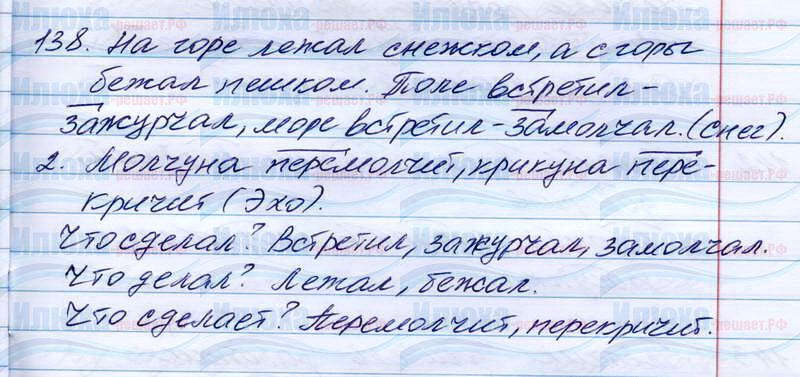 138. На горе лежал снежком, а с горы
бежал пешком. Поле встретил -
зажурчал, море встретил - замолчал. (снег).
2. Молчуна перемолчит, крикуна пере-
кричит (Эхо).
Что сделал? Встретил, зажурчал, замолчал.
Что делал? Лежал, бежал.
Что сделает? Перемолчит, перекричит.